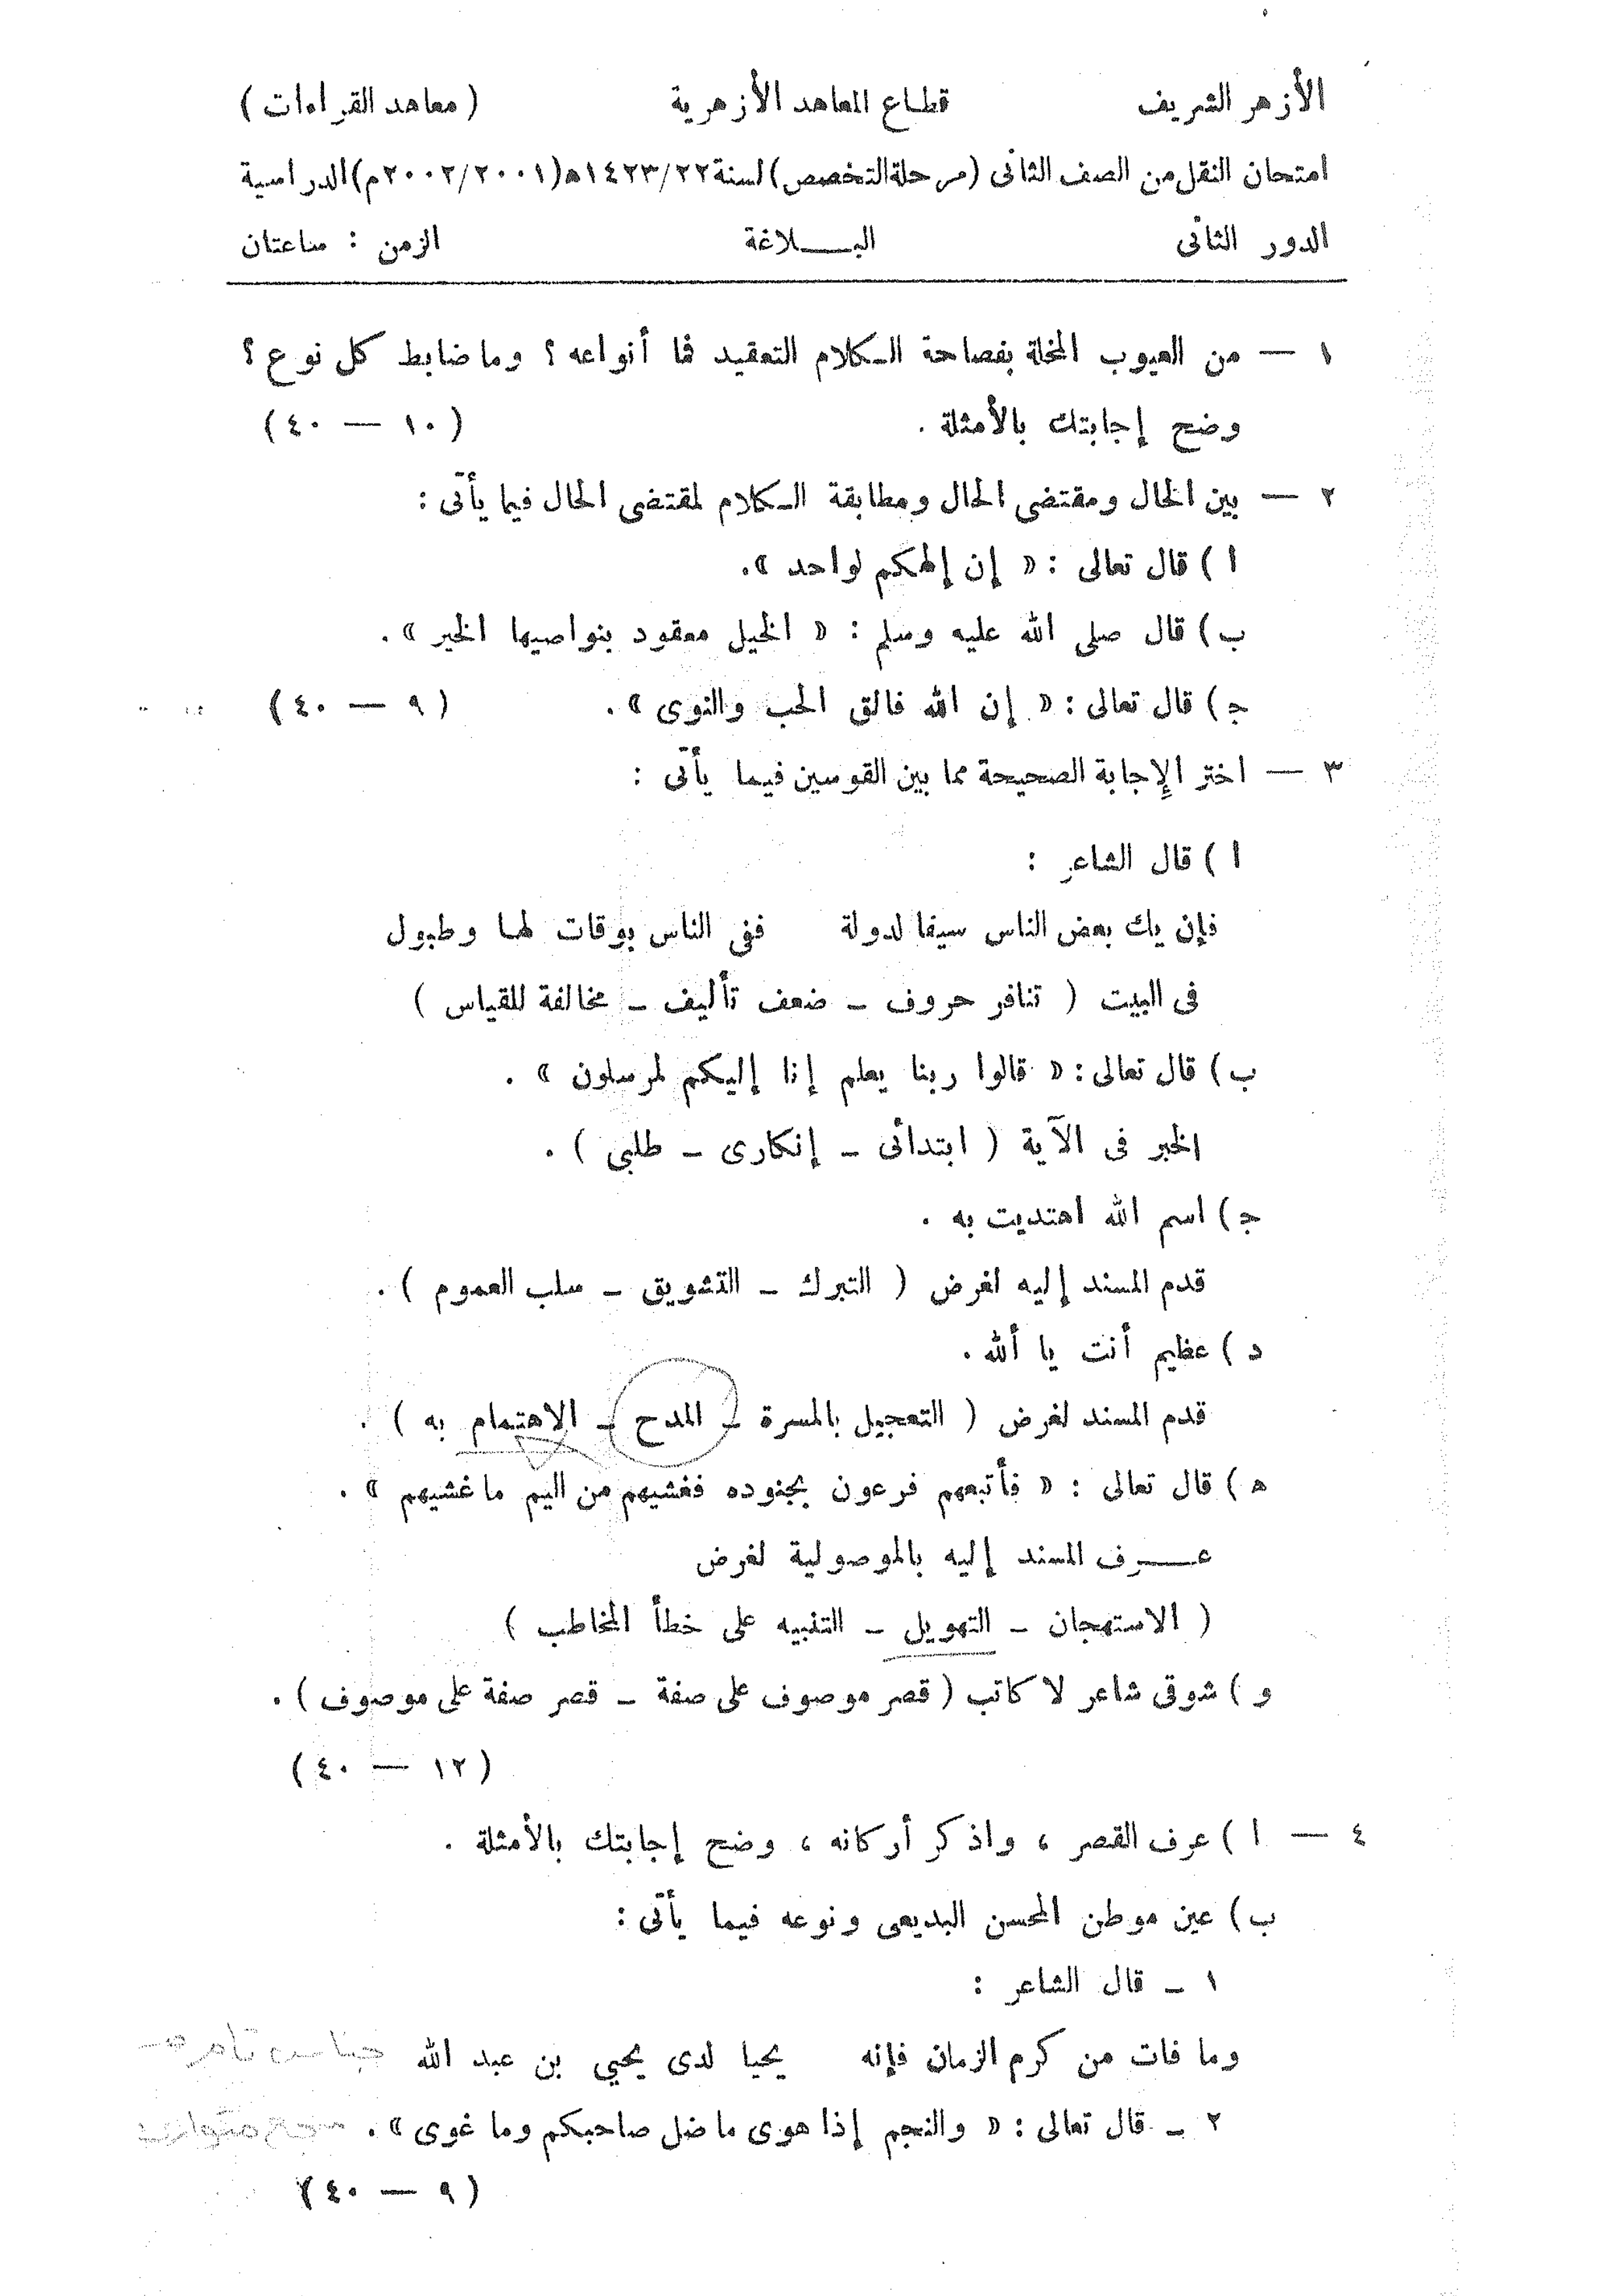 الأزهر الشريف قطاع المعاهد الأزهرية ( معاهد القراءات )
امتحان النقل من الصف الثانى (مرحلة التخصص) لسنة ١٤٢٣/٢٢ه (٢٠٠٢/٢٠٠١م) الدراسية
الدور الثانى البـــلاغة الزمن : ساعتان
١ — من العيوب المخلة بفصاحة الكلام التعقيد فما أنواعه ؟ وما ضابط كل نوع ؟
وضح إجابتك بالأمثلة . (١٠ — ٤٠)
٢ — بين الحال ومقتضى الحال ومطابقة الكلام لمقتضى الحال فيما يأتى :
ا ) قال تعالى : « إن إلهكم لواحد ».
ب) قال صلى الله عليه وسلم : « الخيل معقود بنواصيها الخير » .
ج) قال تعالى : « إن الله فالق الحب والنوى » . (٩ — ٤٠)
٣ — اختر الإجابة الصحيحة مما بين القوسين فيما يأتى :
ا ) قال الشاعر :
فإن يك بعض الناس سيفا لدولة ففى الناس بوقات لها وطبول
فى البيت ( تنافر حروف - ضعف تأليف - مخالفة للقياس )
ب) قال تعالى : « قالوا ربنا يعلم إنا إليكم لمرسلون » .
الخبر فى الآية ( ابتدائى - إنكارى - طلبى ) .
ج) اسم الله اهتديت به .
قدم المسند إليه لغرض ( التبرك - التشويق - سلب العموم ) .
د ) عظيم أنت يا ألله .
قدم المسند لغرض ( التعجيل بالمسرة - المدح - الاهتمام به ) .
ه ) قال تعالى : « فأتبعهم فرعون بجنوده فغشيهم من اليم ما غشيهم » .
عـــرف المسند إليه بالموصولية لغرض
( الاستهجان - التهويل - التنبيه على خطأ المخاطب )
و ) شوقى شاعر لا كاتب ( قصر موصوف على صفة - قصر صفة على موصوف ) .
(١٢ — ٤٠)
٤ — ا ) عرف القصر ، واذكر أركانه ، وضح إجابتك بالأمثلة .
ب) عين موطن المحسن البديعى ونوعه فيما يأتى :
١ - قال الشاعر :
وما فات من كرم الزمان فإنه يحيا لدى يحيي بن عبد الله جناس تام
٢ - قال تعالى : « والنجم إذا هوى ما ضل صاحبكم وما غوى » .
(٩ — ٤٠)